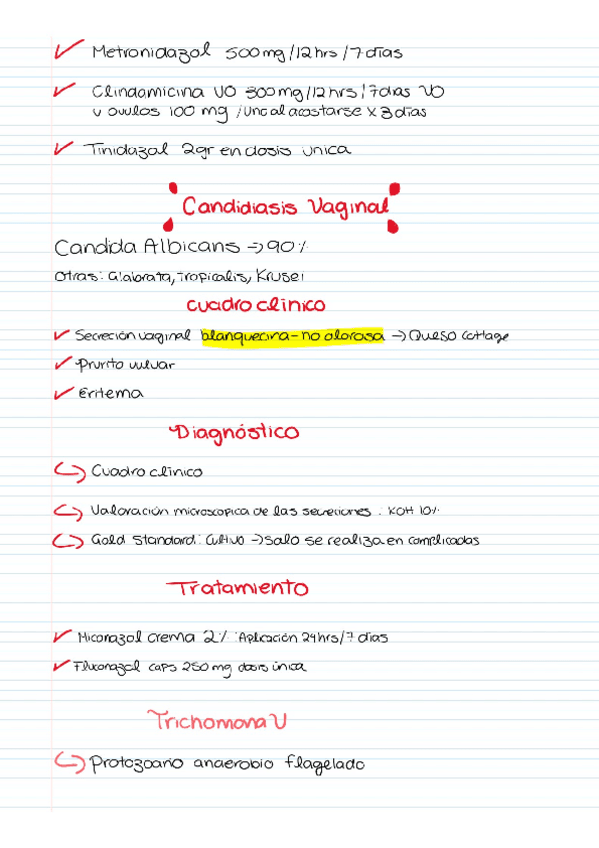 Metronidazol 500mg/12hrs/7días
Clindamicina VO 300mg/12hrs/7dias VO
u ovulos 100 mg /uno al acostarse x 3 dias
Tinidazol 2gr en dosis unica
Candidiasis Vaginal
Candida Albicans → 90%
Otras: Glabrata, Tropicalis, Krusei
Cuadro clínico
Secreción vaginal blanquecina - no olorosa → Queso cottage
Prurito vulvar
Eritema
Diagnóstico
Cuadro clínico
Valoración microscopica de las secreciones : KOH 10%
Gold Standard: Cultivo → Solo se realiza en complicadas
Tratamiento
Miconazol crema 2% : Aplicación 24hrs/7 días
Fluconazol caps 250 mg dosis única
Trichomona V
Protozoario anaerobio flagelado